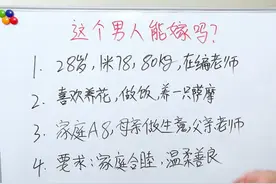 这个男人能嫁吗?
1. 28岁,1米78,80kg,在编老师
2. 喜欢养花,做饭,养一只萨摩
3. 家庭A8,母亲做生意,父亲老师
4. 要求:家庭合睦,温柔善良